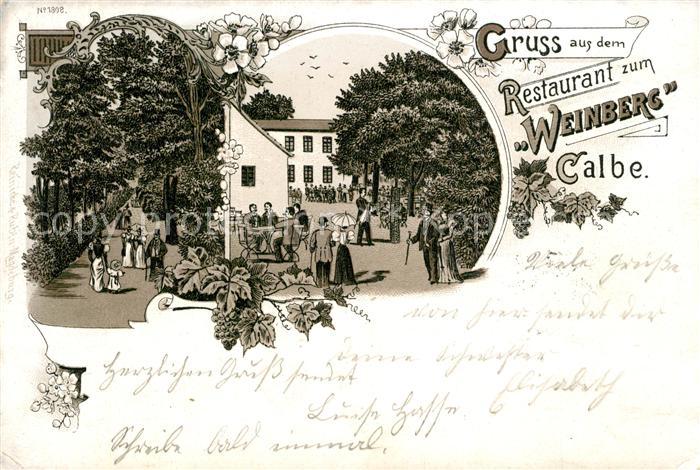 No 1898.
Gruss aus dem
Restaurant zum
„WEINBERG”
Calbe.
Viele Grüße
von hier sendet dir
deine Schwester
Elisabeth
Herzlichen Gruß sendet
Luise Hasse.
Schreibe bald einmal.